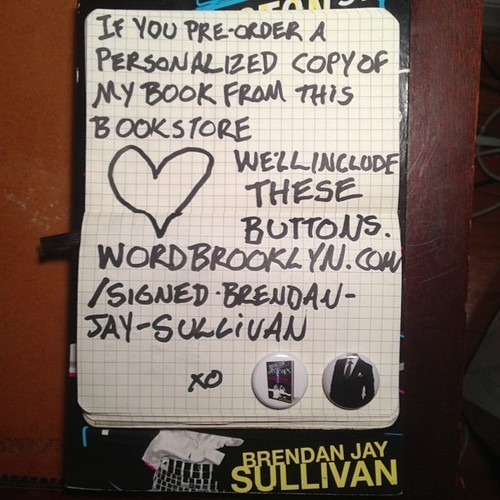 IF YOU PRE-ORDER A
PERSONALIZED COPY OF
MY BOOK FROM THIS
BOOKSTORE
WE'LL INCLUDE
THESE
BUTTONS.
WORDBROOKLYN.COM
/SIGNED-BRENDAN-
JAY-SULLIVAN
XO
BRENDAN JAY
SULLIVAN